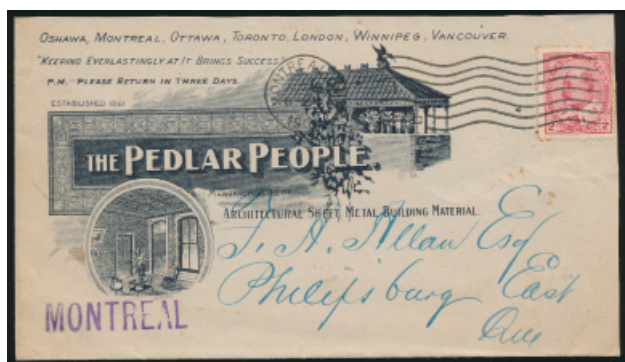 OSHAWA, MONTREAL, OTTAWA, TORONTO, LONDON, WINNIPEG, VANCOUVER.
"KEEPING EVERLASTINGLY AT IT BRINGS SUCCESS"
P.M. PLEASE RETURN IN THREE DAYS
ESTABLISHED 1861
MONTREAL
THE PEDLAR PEOPLE
ARCHITECTURAL SHEET METAL BUILDING MATERIAL.
T. A. Allan Esq
Philipsburg East
Que
MONTREAL